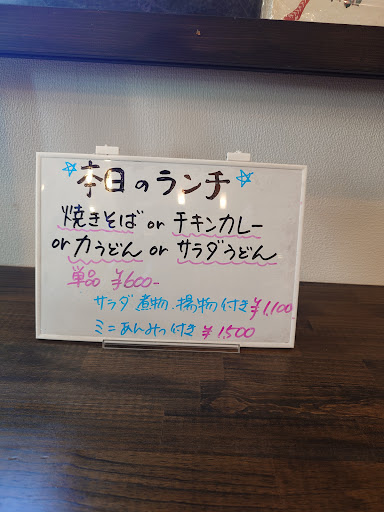 本日のランチ
焼きそば or チキンカレー
or 力うどん or サラダうどん
単品 ¥600-
サラダ 煮物、揚物付き ¥1,100
ミニあんみつ付き ¥1,500